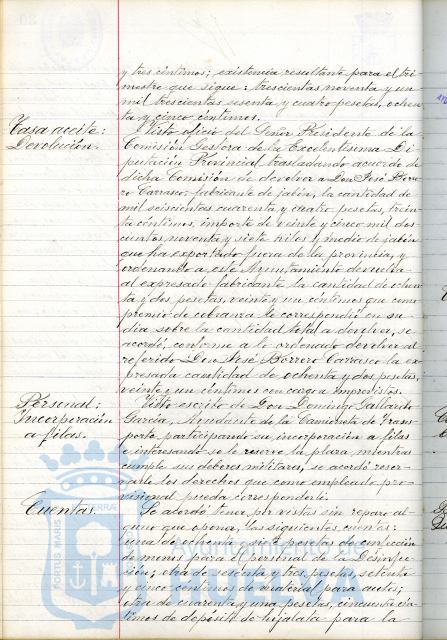 y tres céntimos; existencia resultante para el tri-
mestre que sigue: trescientas noventa y un
mil trescientas sesenta y cuatro pesetas, ochen-
ta y cinco céntimos.
Tasa aceite:
Devolución.
Visto oficio del Señor Presidente de la
Comisión Gestora de la Excelentísima Di-
putación Provincial trasladando acuerdo de
dicha Comisión de devolver a Don José Borre-
ro Carrasco fabricante de jabón, la cantidad de
mil seiscientas cuarenta y cuatro pesetas, trein-
ta céntimos, importe de veinte y cinco mil dos
cientos noventa y siete kilos y medio de jabón
que ha exportado fuera de la provincia, y
ordenando a este Ayuntamiento devuelva
al expresado fabricante la cantidad de ochen-
ta y dos pesetas, veinte y un céntimos que como
premio de cobranza le correspondió en su
día sobre la cantidad total a devolver, se
acordó, conforme a lo ordenado devolver al
referido Don José Borrero Carrasco la ex-
presada cantidad de ochenta y dos pesetas,
veinte y un céntimos con cargo a Imprevistos.
Personal:
Incorporación
a filas.
Visto escrito de Don Domingo Gallardo
García, Ayudante de la Camioneta de trans-
porte, participando su incorporación a filas
e interesando se le reserve la plaza mientras
cumple sus deberes militares, se acordó reser-
varle los derechos que como empleado pro-
visional pueda corresponderle.
Cuentas.
Se acordó tener por vistas sin reparo al-
guno que oponer, las siguientes cuentas:
una de ochenta y siete pesetas de confección
de monos para el personal de la Desinfec-
ción; otra de setenta y tres pesetas, setenta
y cinco céntimos de material para autos;
otra de cuarenta y una pesetas, cincuenta cén-
timos de depósito de hojalata para la
PORTUS MARIS
Ayuntamiento de
HUELVA